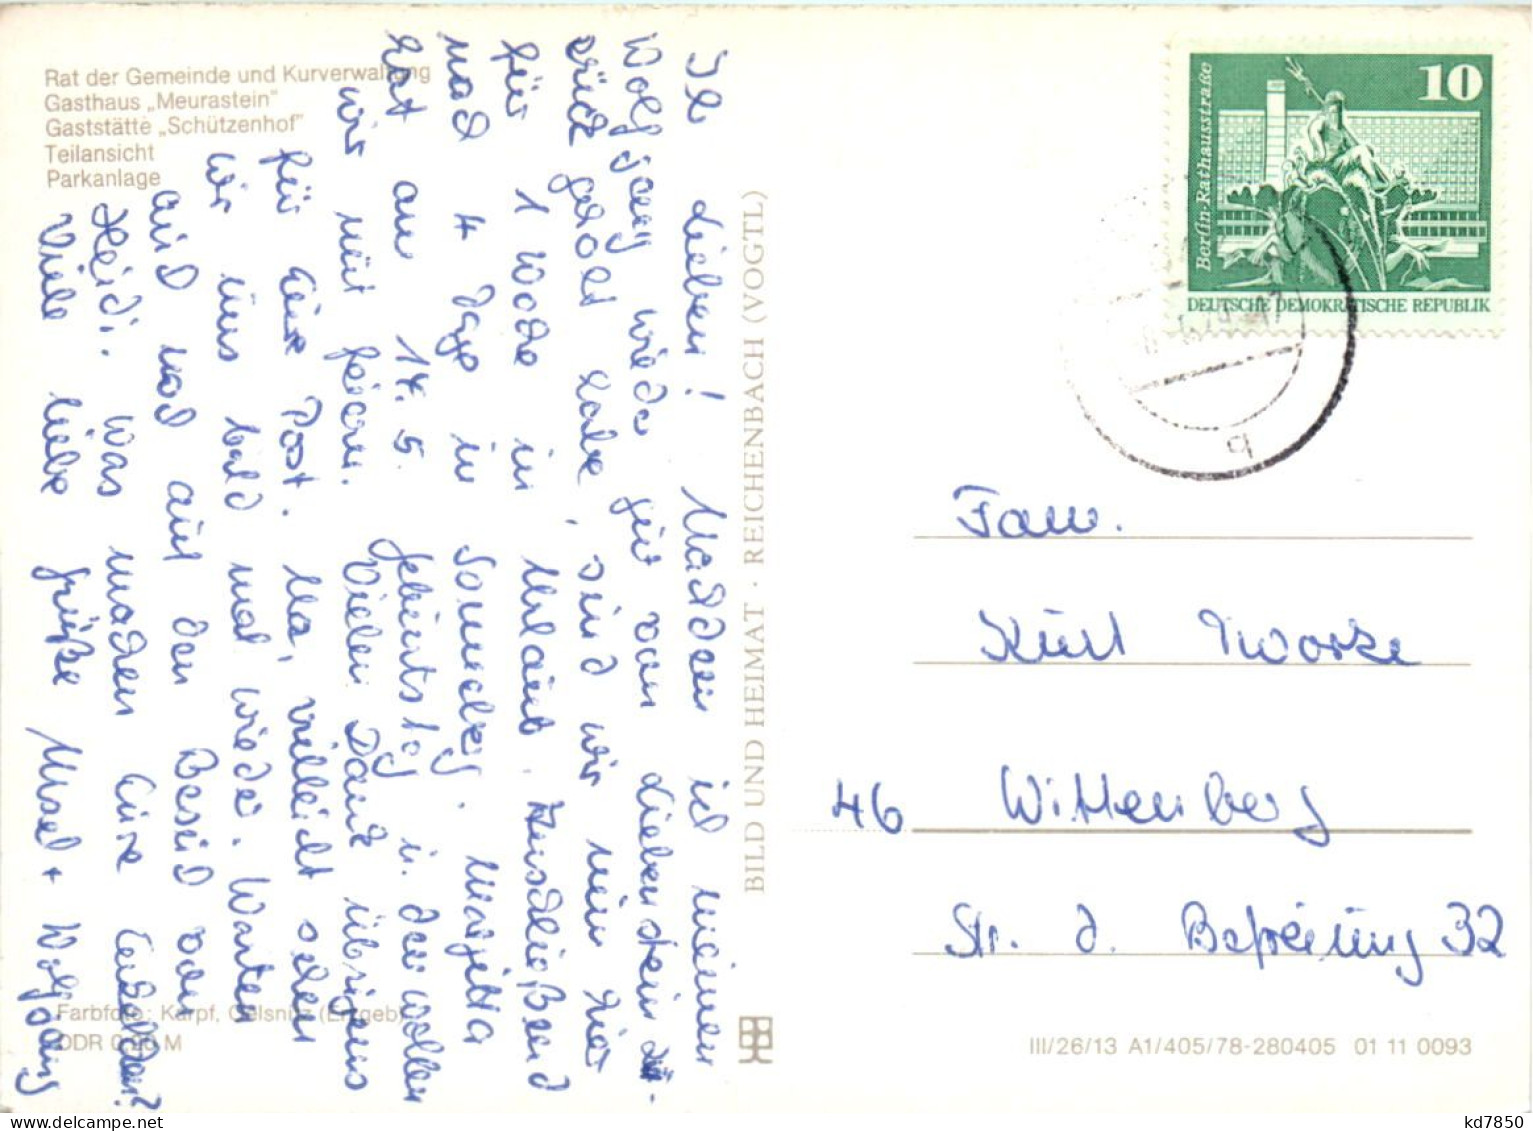 Rat der Gemeinde und Kurverwaltung
Gasthaus „Meurastein"
Gaststätte „Schützenhof"
Teilansicht
Parkanlage
Ihr Lieben! Nachdem ich meinen
Wolfgang wieder gut von Liebenstein zu-
rück geholt habe, sind wir nun hier
für 1 Woche in Urlaub. Anschließend
noch 4 Tage in Sonneberg.
hat am 14. 5. Geburtstag u. den wollen
wir mit feiern. Vielen Dank übrigens
für Eure Post. Na, vielleicht sehen
wir uns bald mal wieder. Warten
auch noch auf den Bescheid von
Heidi. Was machen Eure
Viele liebe Grüße + Wolfgang
BILD UND HEIMAT · REICHENBACH (VOGTL)
Farbfoto: Karpf, Oelsnitz (Erzgeb)
DDR 0,20 M
10
Berlin-Rathausstraße
DEUTSCHE DEMOKRATISCHE REPUBLIK
q
Fam.
Kurt
46 Wittenberg
Str. d. Befreiung 32
III/26/13 A1/405/78-280405 01 11 0093
kd7850